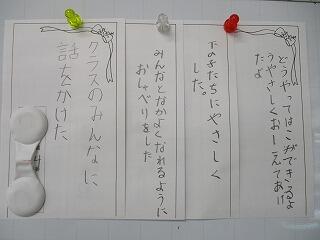 どうやってはこができるよ
うやさしくおしえてあげ
たよ
下の子たちにやさしく
した。
みんなとなかよくなれるように
おしゃべりをした
クラスのみんなに
話をかけた